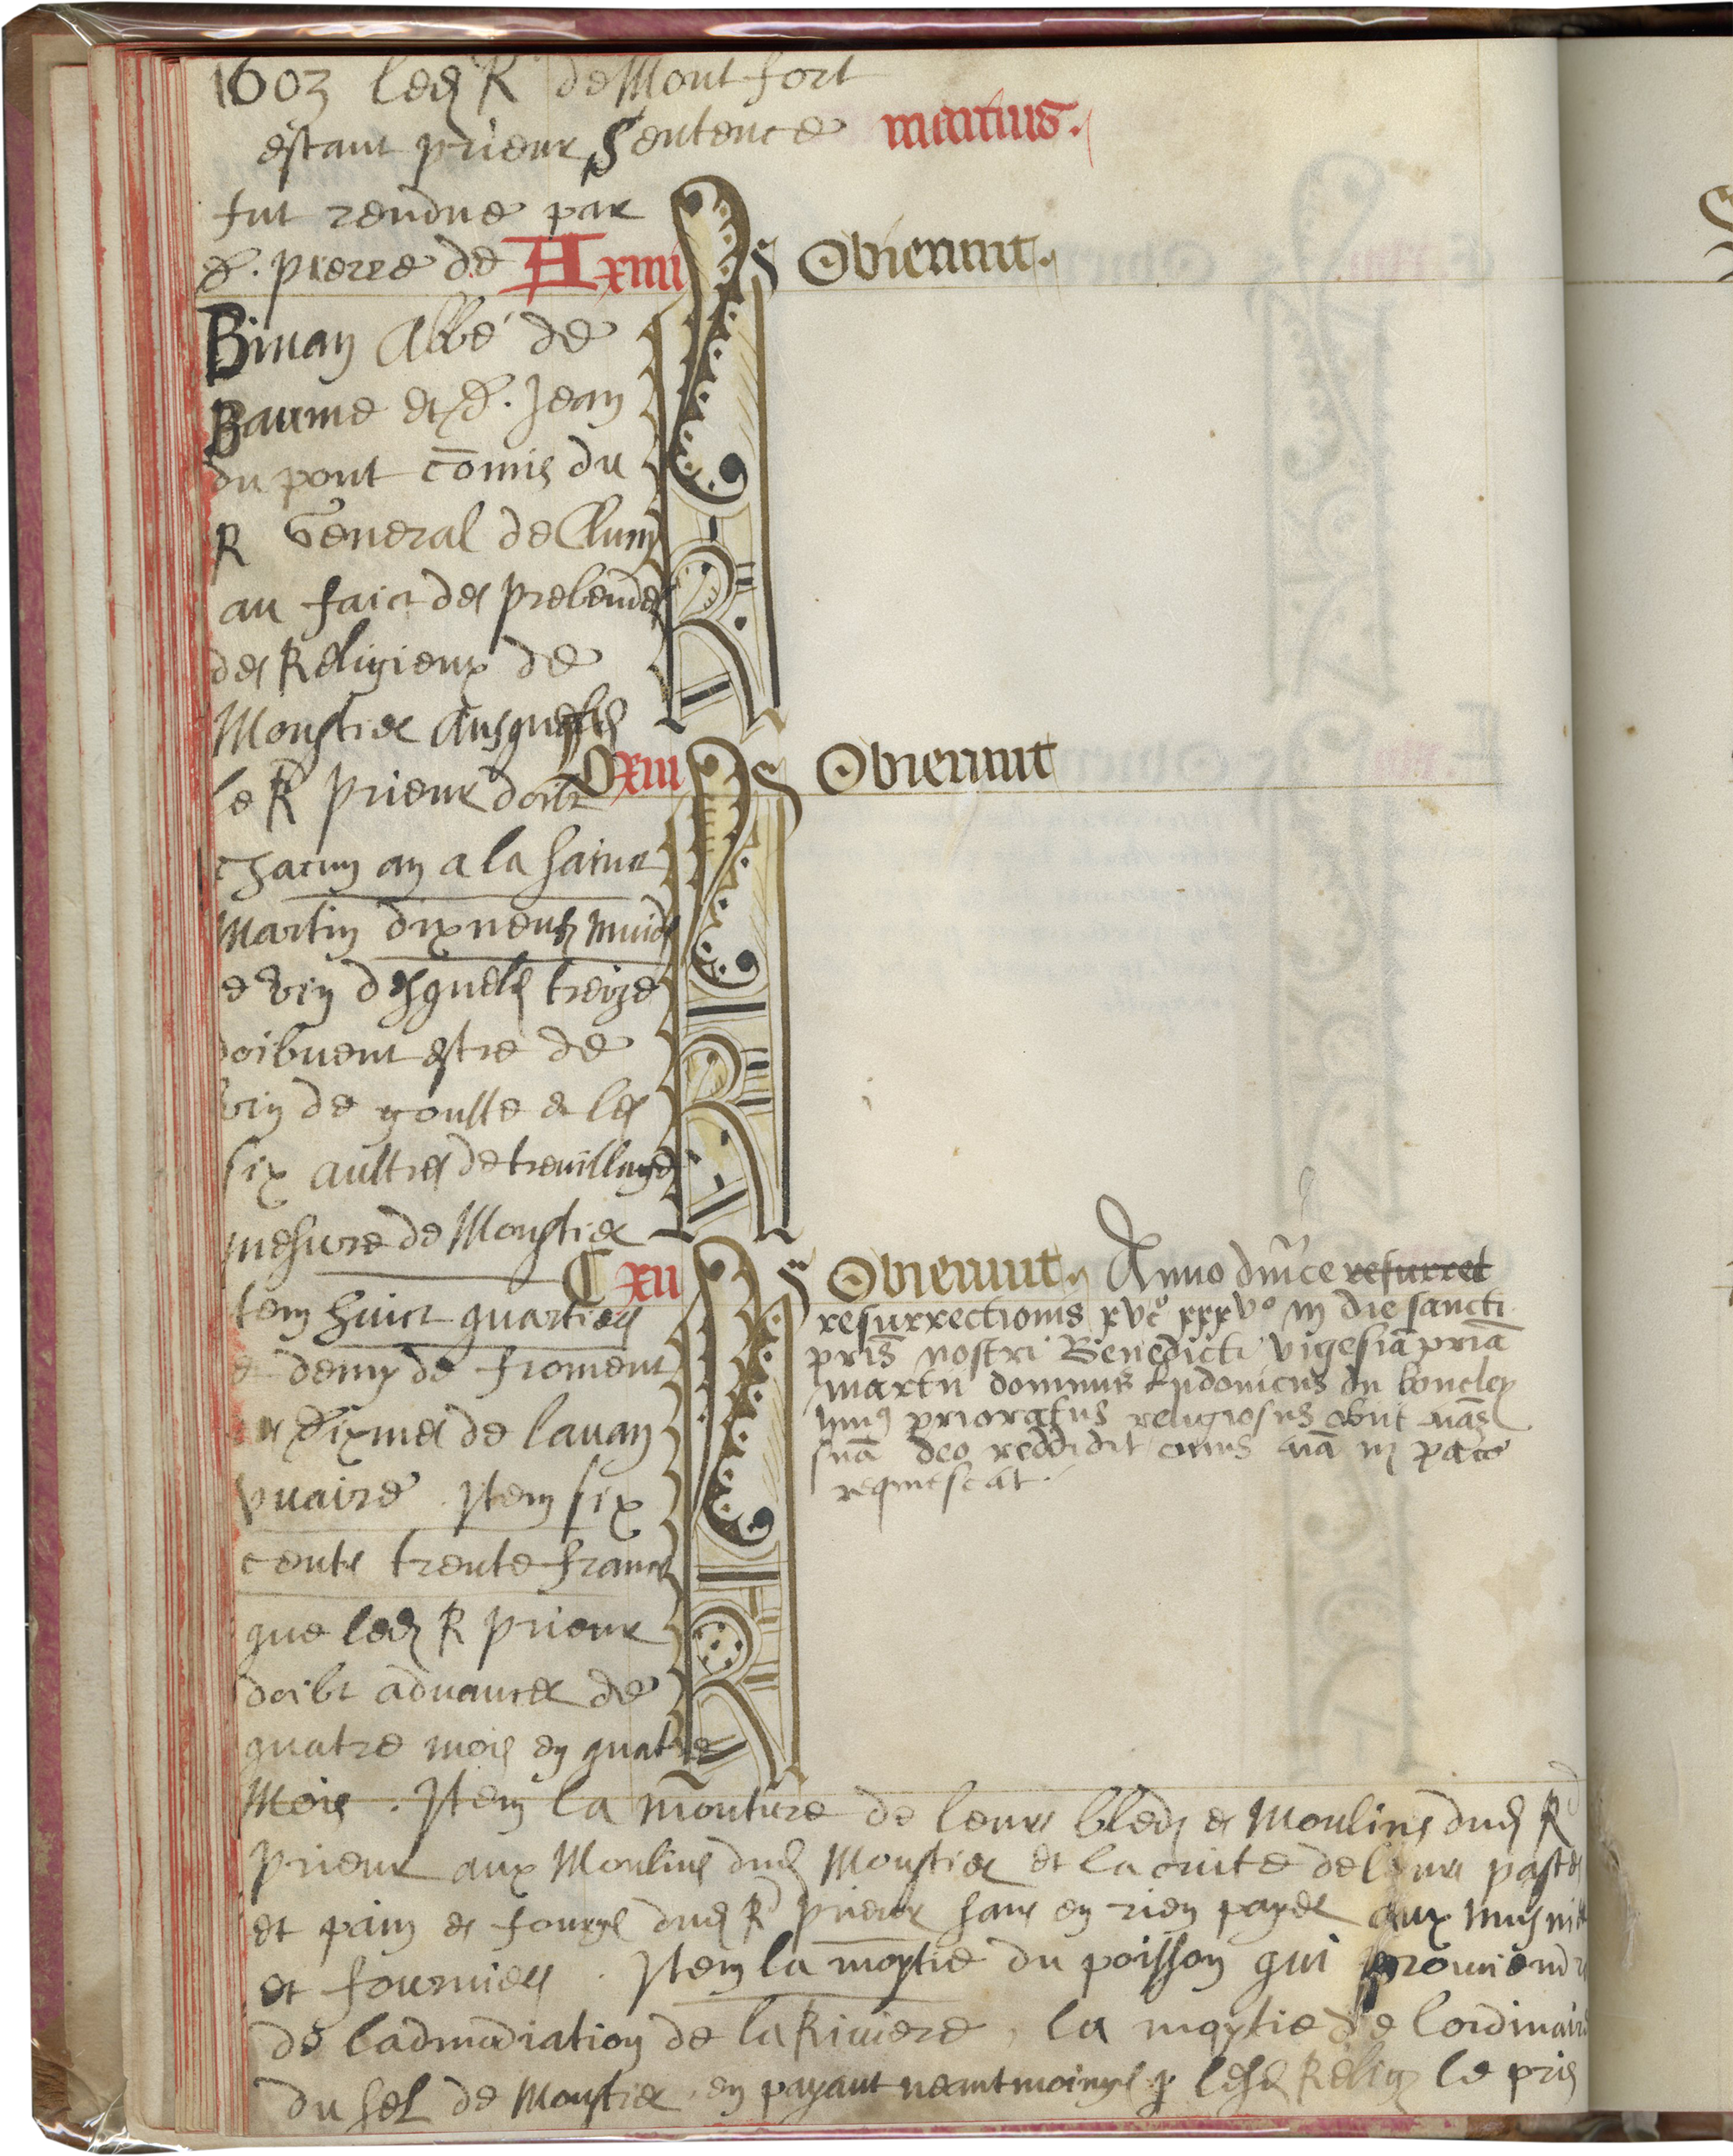 1603 led R de Montfort
estant prieur Sentence
martius.
fut rendue par
d. pierre de
A xiiii KL Obierunt.
Binan Abbé de
Baume et d. Jean
du pont comis du
R General de Cluny
au faict des prebendes
des Religieux de
Monstier ausquels
xiii KL Obierunt
le R prieur doibt
chacun an a la saint
Martin dixneufz muids
de vin desquels treize
doibuent estre de
vin de goutte et les
six aultres de treuillage
mesure de Monstier
C xii KL Obierunt. Anno dnice resurrect
resurrectionis xvc° xxxv° in die sancti
pris nostri Benedicti vigesia pria
martii dominus Ludovicus du
prioratus religiosus obiit
suā deo reddidit cuius aīa in pace
requiescat.
Item huict quartiers
et demy de froment
dixmes de lavan
vuaire. Item six
cents trente francs
que led R prieur
doibt advancer de
quatre mois en quatre
Mois. Item la mouture de leurs bledz es Moulins dud R
prieur aux Moulins dud Monstier et la cuite de leurs pastes
et pain es fours dud R prieur sans en rien payer aux
et fourniers. Item la moytie du poisson qui proviendra
de ladmodiation de la Riviere, la moytie de lordinaire
du sel de Monstier en payant neantmoings p lesd Relig le pris